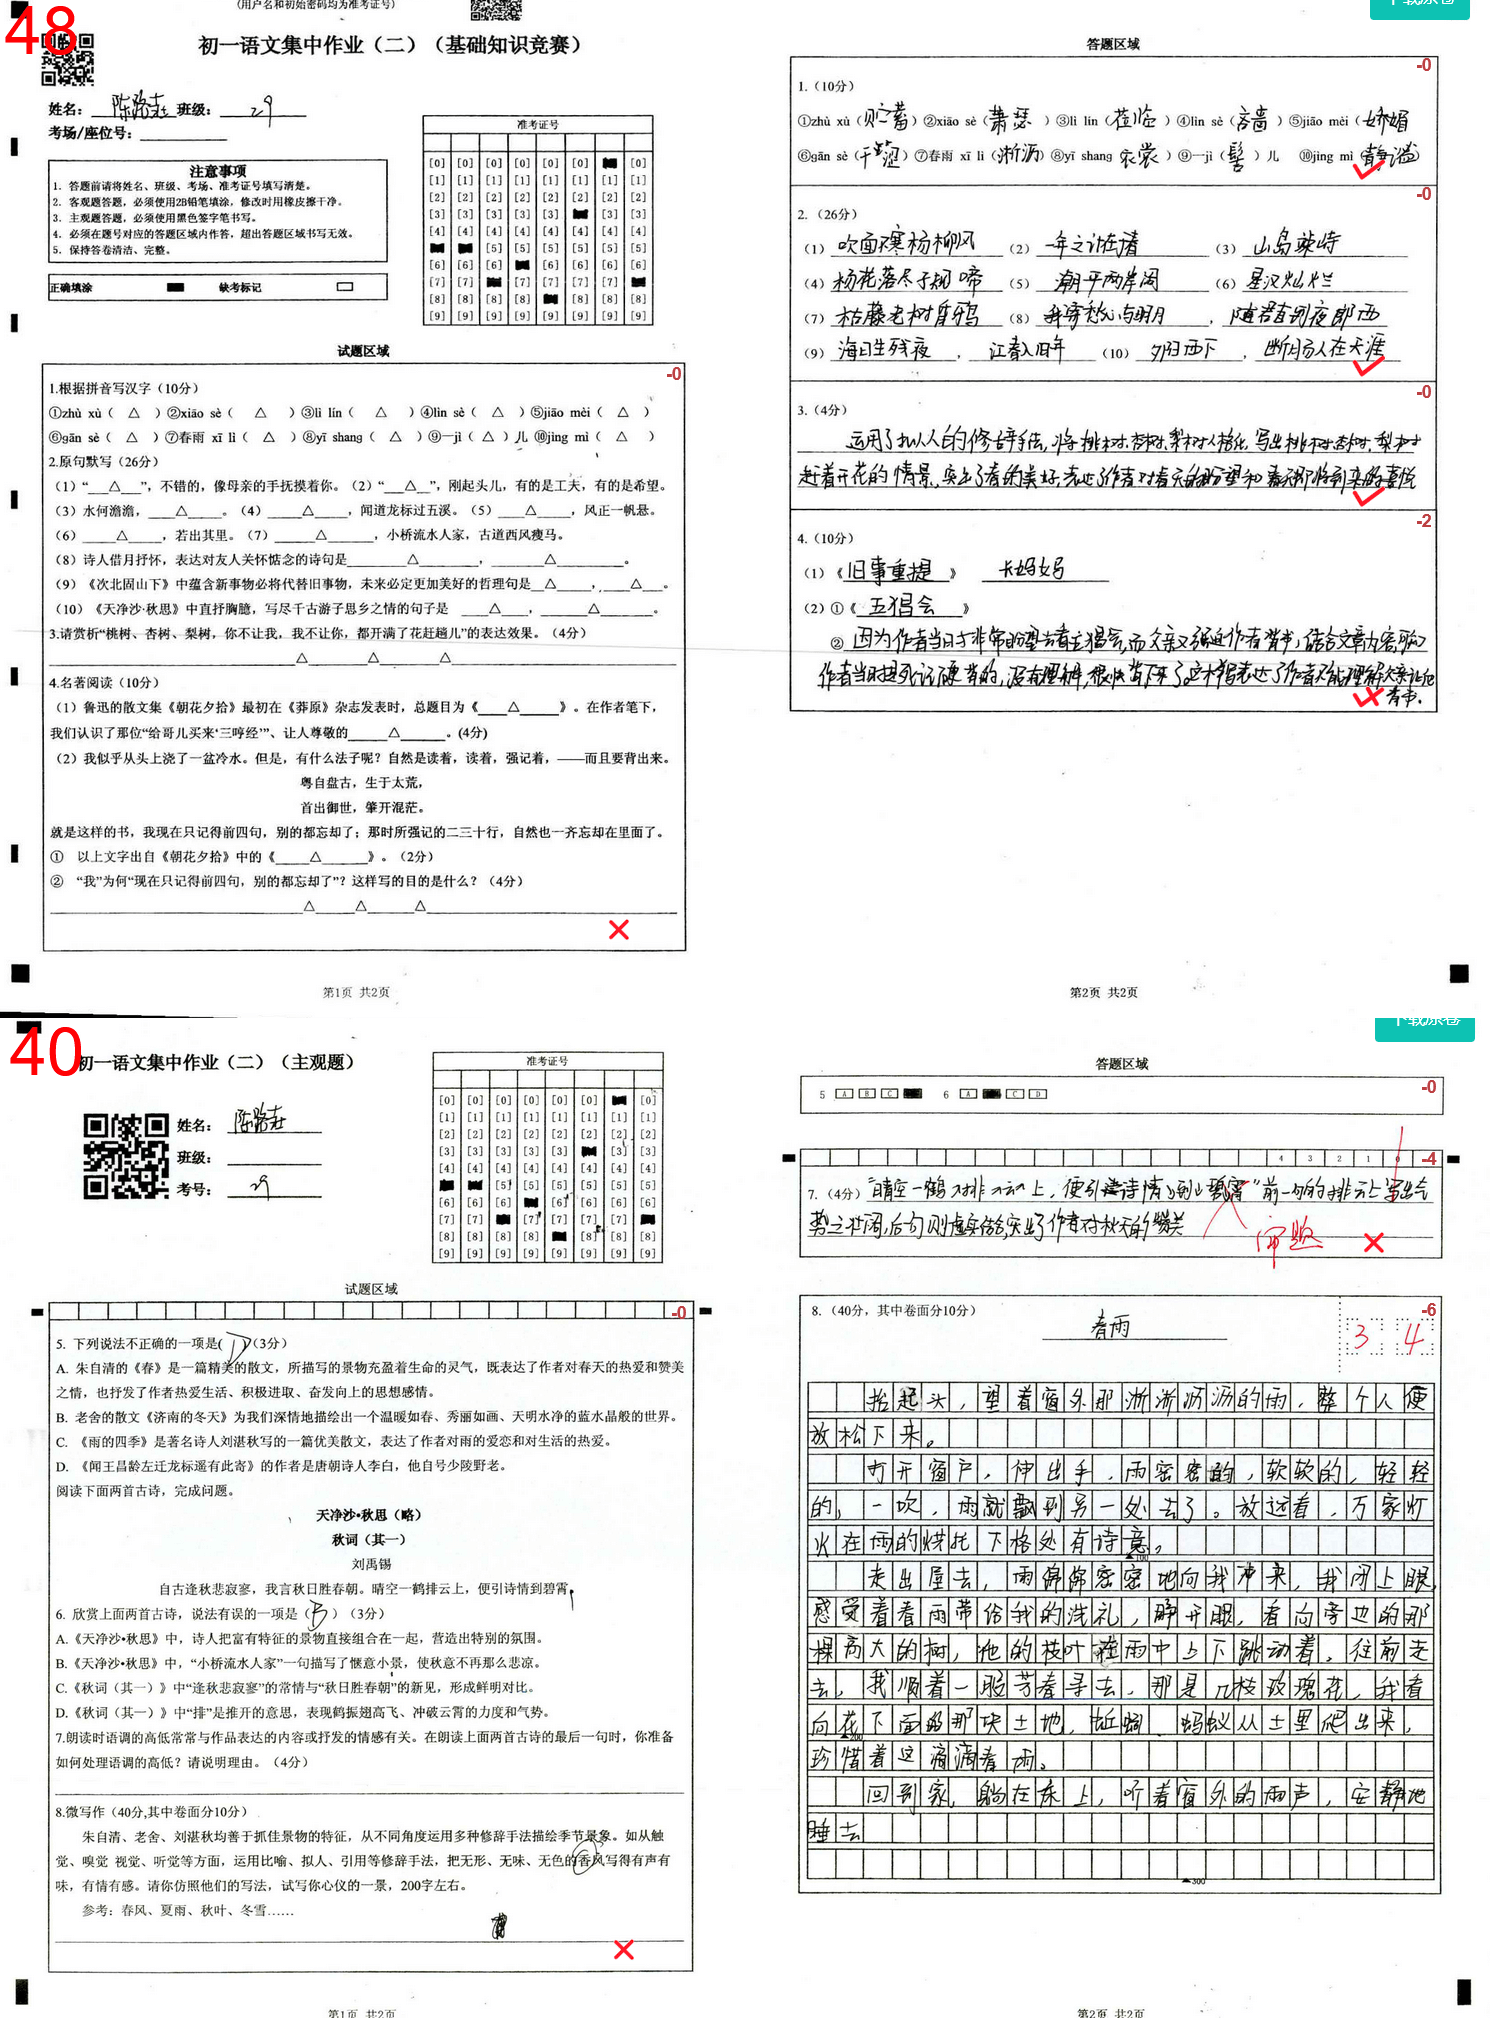 48
(用户名和初始密码均为准考证号)
初一语文集中作业（二）（基础知识竞赛）
姓名： 班级： 29
考场/座位号：
注意事项
1. 答题前请将姓名、班级、考场、准考证号填写清楚。
2. 客观题答题，必须使用2B铅笔填涂，修改时用橡皮擦干净。
3. 主观题答题，必须使用黑色签字笔书写。
4. 必须在题号对应的答题区域内作答，超出答题区域书写无效。
5. 保持答卷清洁、完整。
正确填涂 缺考标记
准考证号
试题区域
-0
1.根据拼音写汉字（10分）
①zhù xù（ △ ）②xiāo sè（ △ ）③lì lín（ △ ）④lìn sè（ △ ）⑤jiāo mèi（ △ ）
⑥gān sè（ △ ）⑦春雨 xī lì（ △ ）⑧yī shang（ △ ）⑨一jì（ △ ）儿 ⑩jìng mì（ △ ）
2.原句默写（26分）
（1）“___△___”，不错的，像母亲的手抚摸着你。（2）“___△__”，刚起头儿，有的是工夫，有的是希望。
（3）水何澹澹，____△____。（4）____△____，闻道龙标过五溪。（5）____△____，风正一帆悬。
（6）____△____，若出其里。（7）____△____，小桥流水人家，古道西风瘦马。
（8）诗人借月抒怀，表达对友人关怀惦念的诗句是____△____，____△____。
（9）《次北固山下》中蕴含新事物必将代替旧事物，未来必定更加美好的哲理句是__△____，__△__。
（10）《天净沙·秋思》中直抒胸臆，写尽千古游子思乡之情的句子是 ____△____，____△____。
3.请赏析“桃树、杏树、梨树，你不让我，我不让你，都开满了花赶趟儿”的表达效果。（4分）
△ △ △
4.名著阅读（10分）
（1）鲁迅的散文集《朝花夕拾》最初在《莽原》杂志发表时，总题目为《____△____》。在作者笔下，
我们认识了那位“给哥儿买来‘三哼经’”、让人尊敬的____△____。(4分)
（2）我似乎从头上浇了一盆冷水。但是，有什么法子呢？自然是读着，读着，强记着，——而且要背出来。
粤自盘古，生于太荒，
首出御世，肇开混茫。
就是这样的书，我现在只记得前四句，别的都忘却了；那时所强记的二三十行，自然也一齐忘却在里面了。
① 以上文字出自《朝花夕拾》中的《____△____》。（2分）
② “我”为何“现在只记得前四句，别的都忘却了”？这样写的目的是什么？（4分）
△ △ △
第1页 共2页
答题区域
-0
1.（10分）
①zhù xù（贮蓄）②xiāo sè（萧瑟）③lì lín（莅临）④lìn sè（吝啬）⑤jiāo mèi（娇媚
⑥gān sè（干涩）⑦春雨 xī lì（淅沥）⑧yī shang（衣裳）⑨一jì（髻）儿 ⑩jìng mì（静谧
-0
2.（26分）
（1）吹面不寒杨柳风 （2）一年之计在于春 （3）山岛竦峙
（4）杨花落尽子规啼 （5）潮平两岸阔 （6）星汉灿烂
（7）枯藤老树昏鸦 （8）我寄愁心与明月 ，随君直到夜郎西
（9）海日生残夜 ，江春入旧年 （10）夕阳西下 ，断肠人在天涯
-0
3.（4分）
运用了拟人的修辞手法，将桃树、杏树、梨树人格化，写出桃树、杏树、梨树
赶着开花的情景，突出了春的美好，表达了作者对春天的盼望和春天即将到来的喜悦
-2
4.（10分）
（1）《旧事重提》 长妈妈
（2）①《五猖会》
②因为作者当日于非常盼望去看五猖会，而父亲又强迫作者背书，结合文章内容
作者当时是死记硬背的，没有理解，很快背下来了。这样写表达了作者不能理解父亲让他
背书.
第2页 共2页
40
初一语文集中作业（二）（主观题）
姓名：
班级：
考号： 29
准考证号
试题区域
-0
5. 下列说法不正确的一项是( D )(3分)
A. 朱自清的《春》是一篇精美的散文，所描写的景物充盈着生命的灵气，既表达了作者对春天的热爱和赞美
之情，也抒发了作者热爱生活、积极进取、奋发向上的思想感情。
B. 老舍的散文《济南的冬天》为我们深情地描绘出一个温暖如春、秀丽如画、天明水净的蓝水晶般的世界。
C. 《雨的四季》是著名诗人刘湛秋写的一篇优美散文，表达了作者对雨的爱恋和对生活的热爱。
D. 《闻王昌龄左迁龙标遥有此寄》的作者是唐朝诗人李白，他自号少陵野老。
阅读下面两首古诗，完成问题。
天净沙•秋思（略）
秋词（其一）
刘禹锡
自古逢秋悲寂寥，我言秋日胜春朝。晴空一鹤排云上，便引诗情到碧霄。
6. 欣赏上面两首古诗，说法有误的一项是（ B ）（3分）
A.《天净沙•秋思》中，诗人把富有特征的景物直接组合在一起，营造出特别的氛围。
B.《天净沙•秋思》中，“小桥流水人家”一句描写了惬意小景，使秋意不再那么悲凉。
C.《秋词（其一）》中“逢秋悲寂寥”的常情与“秋日胜春朝”的新见，形成鲜明对比。
D.《秋词（其一）》中“排”是推开的意思，表现鹤振翅高飞、冲破云霄的力度和气势。
7.朗读时语调的高低常常与作品表达的内容或抒发的情感有关。在朗读上面两首古诗的最后一句时，你准备
如何处理语调的高低？请说明理由。（4分）
8.微写作（40分,其中卷面分10分）
朱自清、老舍、刘湛秋均善于抓住景物的特征，从不同角度运用多种修辞手法描绘季节景象。如从触
觉、嗅觉 视觉、听觉等方面，运用比喻、拟人、引用等修辞手法，把无形、无味、无色的香风写得有声有
味，有情有感。请你仿照他们的写法，试写你心仪的一景，200字左右。
参考：春风、夏雨、秋叶、冬雪……
第1页 共2页
答题区域
-0
5 A B C 6 A C D
4 3 2 1 0 -4
7.（4分）“晴空一鹤排云上，便引诗情到碧霄”前一句的排云上写出气
势之壮阔，后句则虚实结合，突出了作者对秋天的赞美
审题
8.（40分，其中卷面分10分） 春雨
-6
3 4
抬起头，望着窗外那淅淅沥沥的雨，整个人便
放松下来。
打开窗户，伸出手，雨密密的，软软的，轻轻
的，一吹，雨就飘到另一处去了。放远看，万家灯
火在雨的烘托下格外有诗意。
走出屋去，雨绵绵密密地向我冲来，我闭上眼，
感受着春雨带给我的洗礼，睁开眼，看向旁边的那
棵高大的树，他的枝叶在雨中上下跳动着。往前走
去，我顺着一股芳香寻去，那是几枝玫瑰花，我看
向花下面的那块土地，蚯蚓、蚂蚁从土里爬出来，
珍惜着这滴滴春雨。
回到家，躺在床上，听着窗外的雨声，安静地
睡去
第2页 共2页